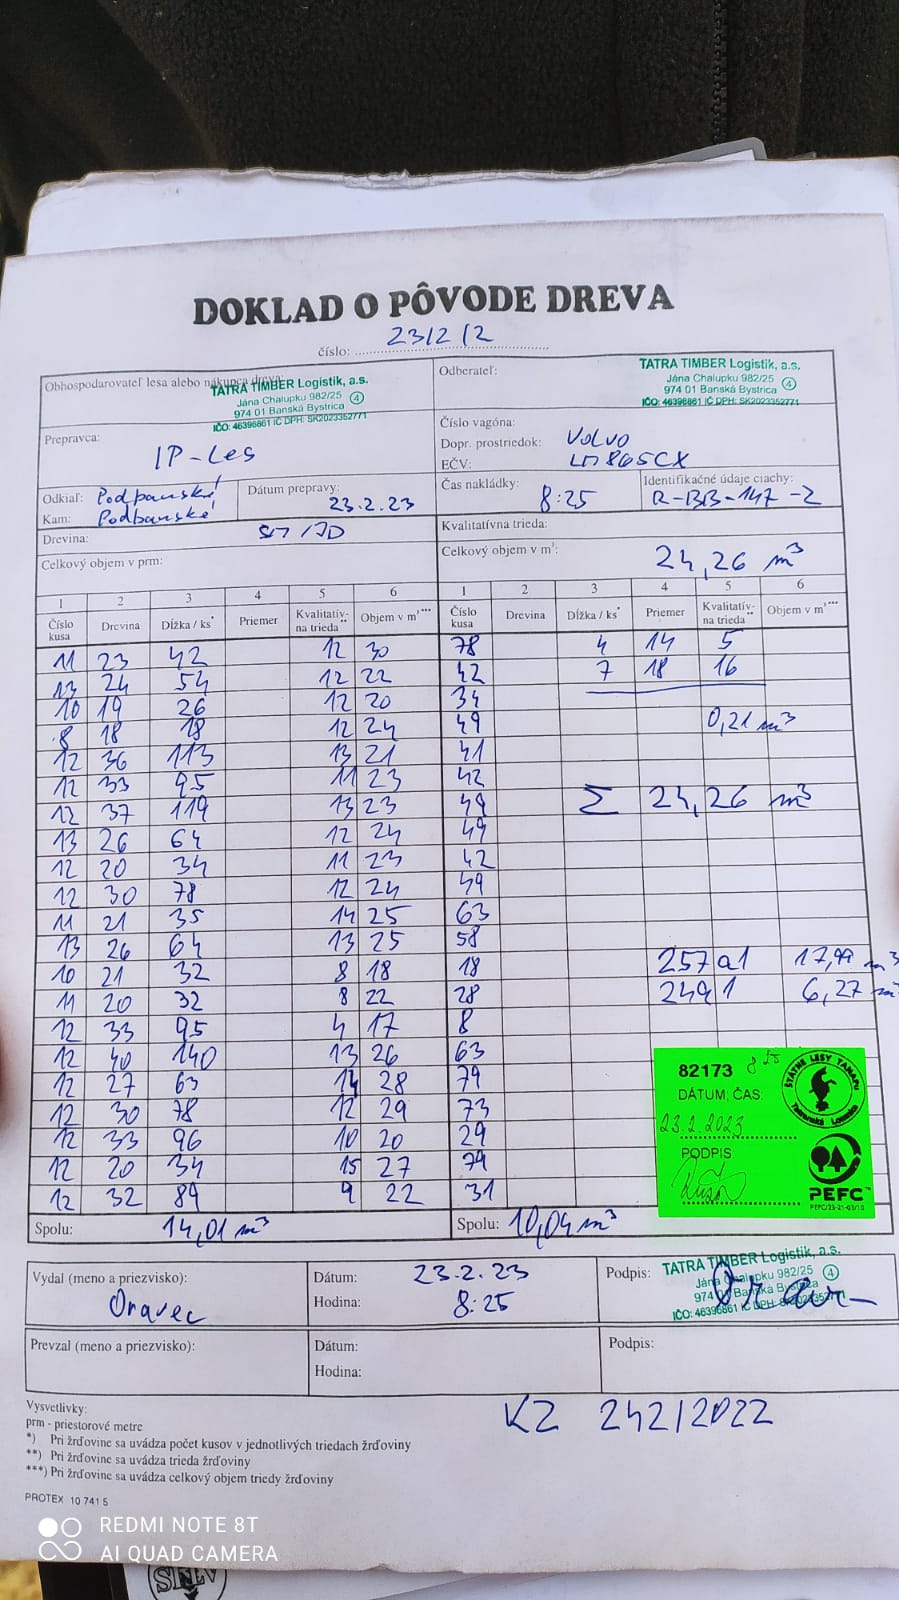 DOKLAD O PÔVODE DREVA
číslo: 23/2/2
Obhospodarovateľ lesa alebo nákupca dreva:
TATRA TIMBER Logistik, a.s.
Jána Chalupku 982/25 4
974 01 Banská Bystrica
IČO: 46396861 IČ DPH: SK2023352771
Odberateľ:
TATRA TIMBER Logistik, a.s.
Jána Chalupku 982/25 4
974 01 Banská Bystrica
IČO: 46396861 IČ DPH: SK2023352771
Prepravca:
IP-Les
Číslo vagóna:
Dopr. prostriedok: Volvo
EČV: LM865CX
Odkiaľ: Podbanské
Kam: Podbanské
Dátum prepravy:
23.2.23
Čas nakládky:
8:25
Identifikačné údaje ciachy:
R-BB-147-2
Drevina: SM/JD
Kvalitatívna trieda:
Celkový objem v prm:
Celkový objem v m³: 24,26 m³
1 2 3 4 5 6 1 2 3 4 5 6
Číslo kusa Drevina Dĺžka / ks* Priemer Kvalitatív-na trieda** Objem v m³*** Číslo kusa Drevina Dĺžka / ks* Priemer Kvalitatív-na trieda** Objem v m³***
11 23 42 12 30 78 4 14 5
13 24 54 12 22 42 7 18 16
10 19 26 12 20 34
8 18 18 12 24 49 0,21 m³
12 36 113 13 21 41
12 33 95 11 23 42
12 37 119 13 23 49 Σ 24,26 m³
13 26 64 12 24 49
12 20 34 11 23 42
12 30 78 12 24 49
11 21 35 14 25 63
13 26 64 13 25 58
10 21 32 8 18 18 257a1 17,99 m³
11 20 32 8 22 28 249a1 6,27 m³
12 33 95 4 17 8
12 40 140 13 26 63
12 27 63 14 28 79
12 30 78 12 29 73
12 33 96 10 20 29
12 20 34 15 27 79
12 32 89 9 22 31
82173 8 25
DÁTUM, ČAS:
23.2.2023
PODPIS
ŠTÁTNE LESY TANAPu
Tatranská Lomnica
PEFC™
PEFC/23-21-03/10
Spolu: 14,01 m³
Spolu: 10,04 m³
Vydal (meno a priezvisko):
Oravec
Dátum: 23.2.23
Hodina: 8:25
Podpis:
TATRA TIMBER Logistik, a.s.
Jána Chalupku 982/25 4
974 01 Banská Bystrica
IČO: 46396861 IČ DPH: SK2023352771
Prevzal (meno a priezvisko):
Dátum:
Hodina:
Podpis:
KZ 242/2022
Vysvetlivky:
prm - priestorové metre
*) Pri žrďovine sa uvádza počet kusov v jednotlivých triedach žrďoviny
**) Pri žrďovine sa uvádza trieda žrďoviny
***) Pri žrďovine sa uvádza celkový objem triedy žrďoviny
PROTEX 10 741 5
REDMI NOTE 8T
AI QUAD CAMERA